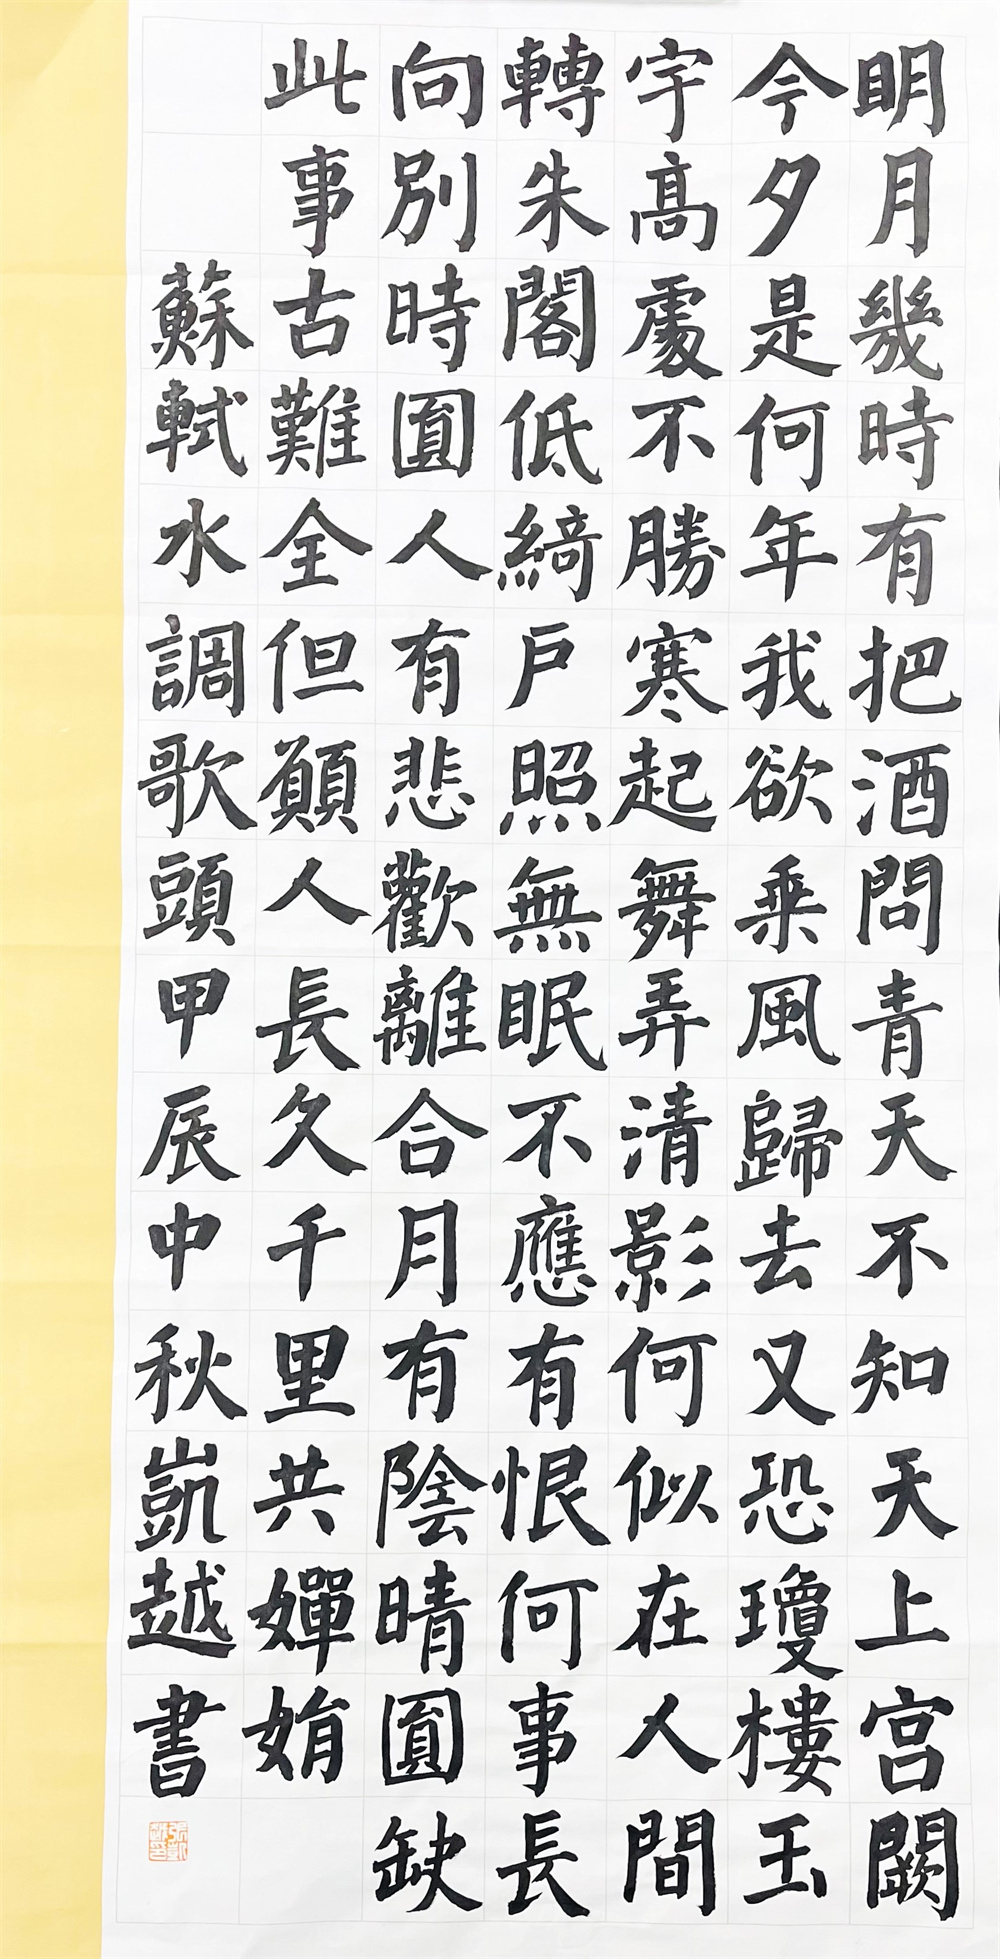 明月幾時有把酒問青天不知天上宮闕
今夕是何年我欲乘風歸去又恐瓊樓玉
宇高處不勝寒起舞弄清影何似在人間
轉朱閣低綺戶照無眠不應有恨何事長
向別時圓人有悲歡離合月有陰晴圓缺
此事古難全但願人長久千里共嬋娟
蘇軾水調歌頭甲辰中秋凱越書
張凱越印